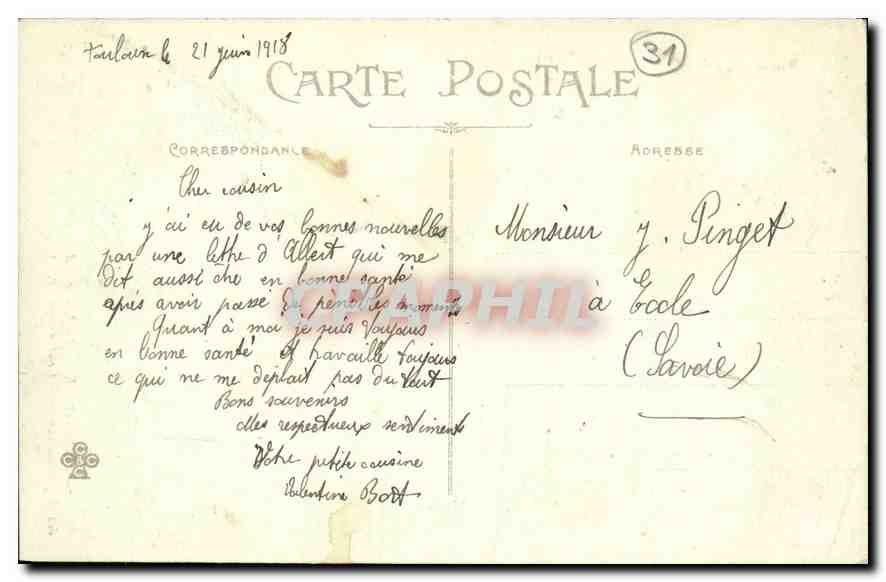 Toulouse le 21 juin 1918
31
CARTE POSTALE
CORRESPONDANCE
ADRESSE
Cher cousin
j'ai eu de vos bonnes nouvelles
par une lettre d'Albert qui me
dit aussi être en bonne santé
après avoir passé de pénibles moments
Quant à moi je suis toujours
en bonne santé et travaille toujours
ce qui ne me deplait pas du tout
Bons souvenirs
Mes respectueux sentiments
Votre petite cousine
Valentine Bort
Monsieur J. Pinget
à Ecole
(Savoie)
CPAPHIL
CCCC